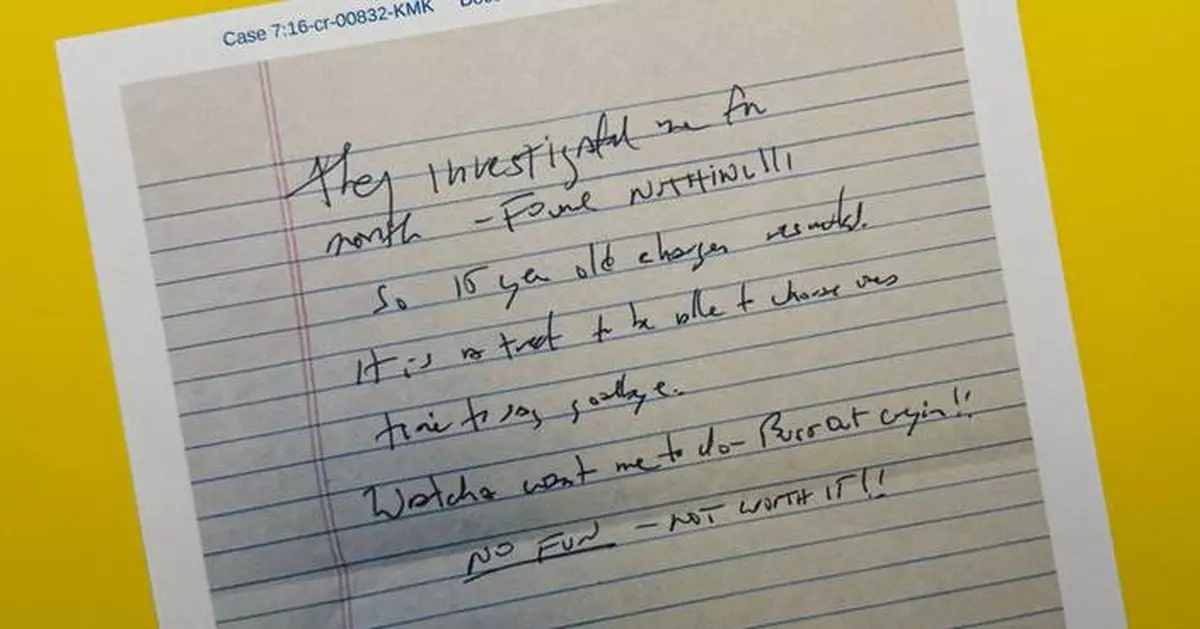 Case 7:16-cr-00832-KMK
They investigated me for
month - Found NOTHING!!!
So 15 year old charges resulted.
It is a treat to be able to choose ones
time to say goodbye.
Watcha want me to do - Burst out cryin!!
NO FUN - NOT WORTH IT!!